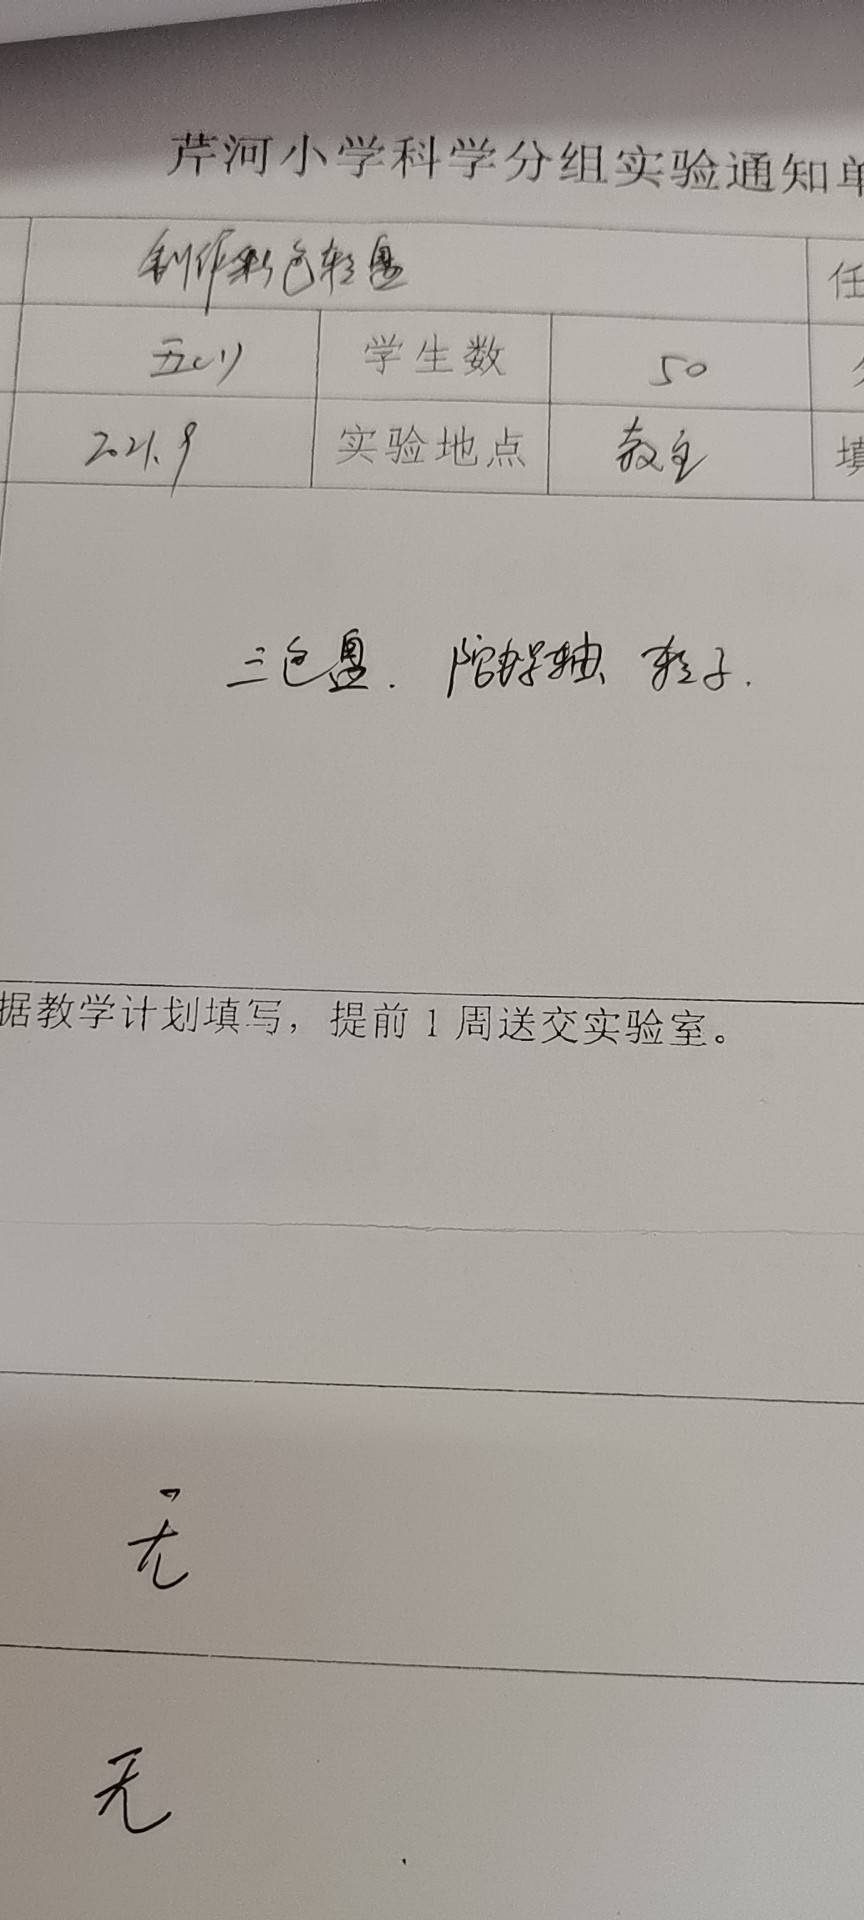 芹河小学科学分组实验通知单
制作彩色轮盘 任
五(1) 学生数 50
2021.9 实验地点 教室 填
三色盘. 陀螺轴、轮子.
据教学计划填写，提前1周送交实验室。
无
无